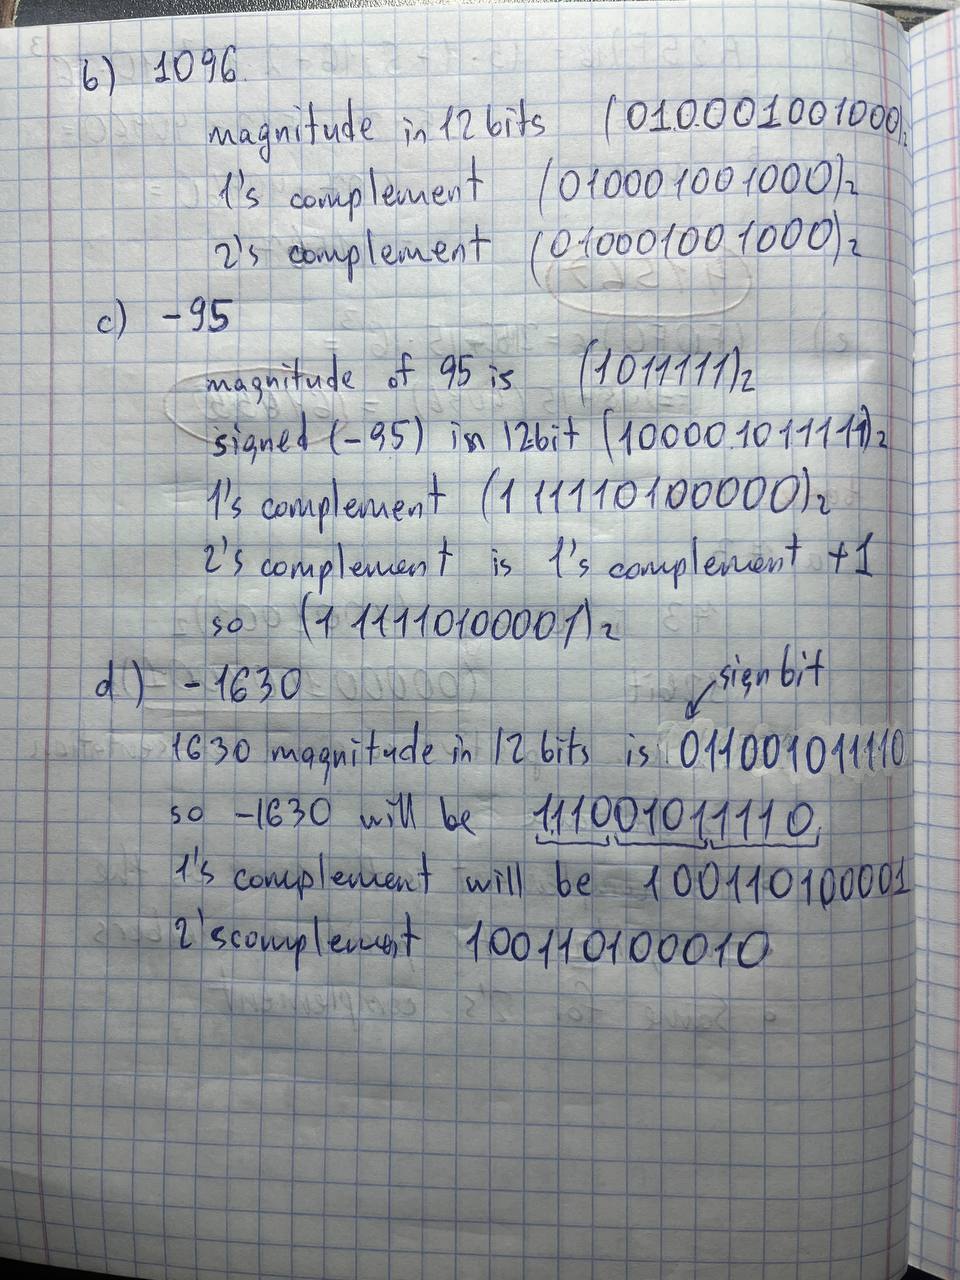 b) 1096
magnitude in 12 bits (010001001000)₂
1's complement (010001001000)₂
2's complement (010001001000)₂
c) -95
magnitude of 95 is (1011111)₂
signed (-95) in 12bit (100001011111)₂
1's complement (111110100000)₂
2's complement is 1's complement +1
so (111110100001)₂
d) -1630
sign bit
1630 magnitude in 12 bits is 011001011110
so -1630 will be 111001011110
1's complement will be 100110100001
2's complement 100110100010